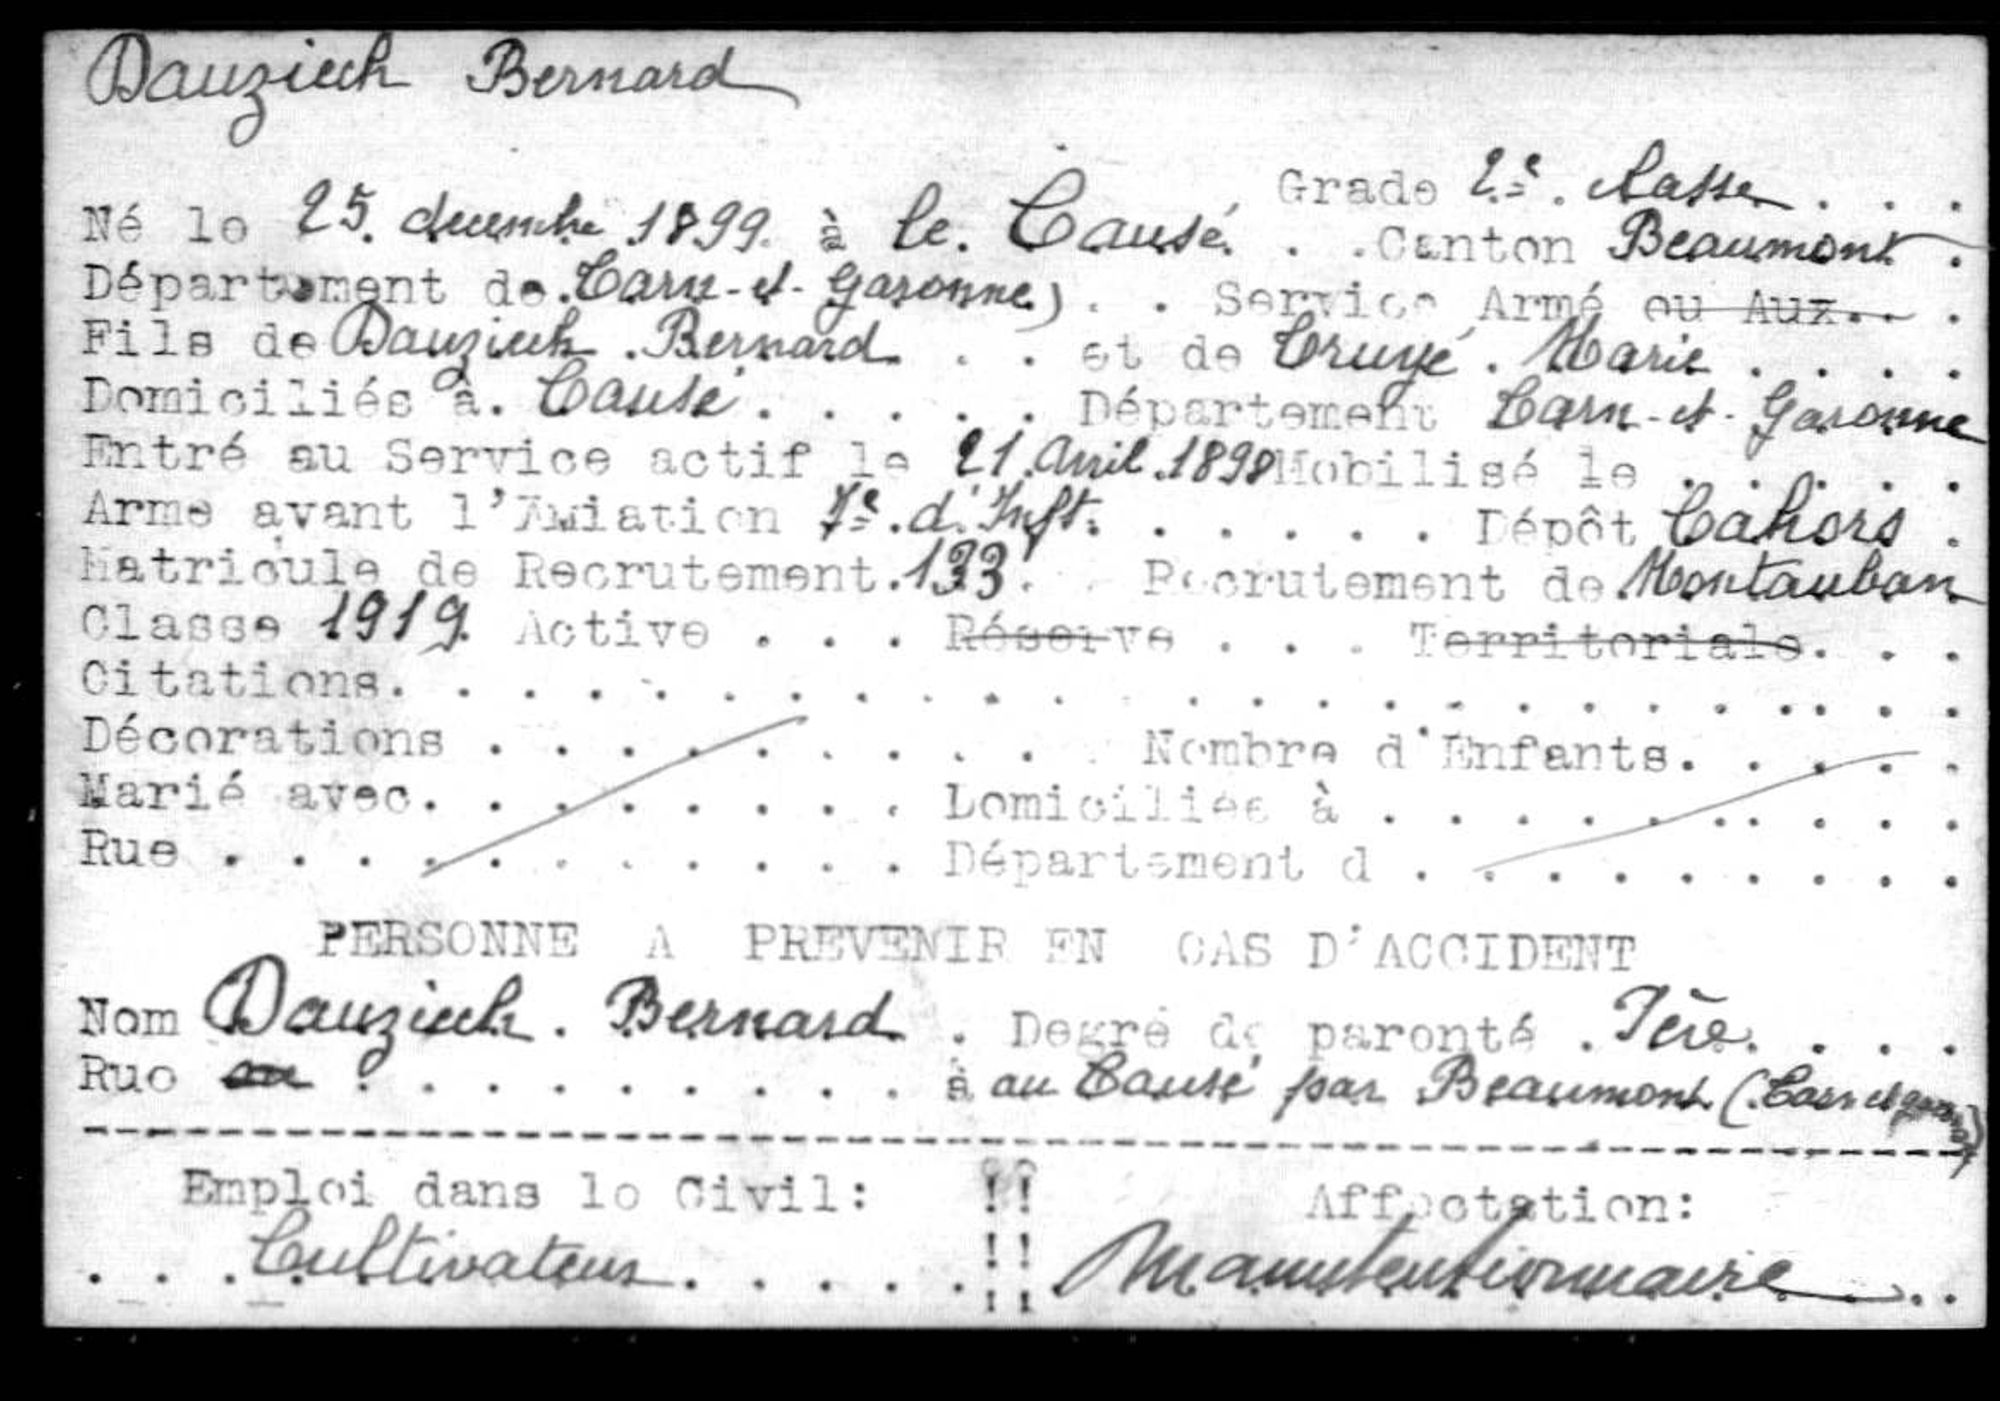 Dauziech Bernard
Grade 2e. classe . . .
Né le 25. decembre 1899. à le. Causé. . . Canton Beaumont .
Département de. Tarn-et-Garonne) . . Service Armé ou Aux... .
Fils de Dauziech . Bernard . . . et de Cruyé . Marie . . . .
Domiciliés à. Causé . . . . . Département Tarn-et-Garonne
Entré au Service actif le 21. Avril. 1898 Mobilisé le . . . . .
Arme avant l'Aviation 7e. d'Inft. . . . . . Dépôt Cahors .
Matricule de Recrutement. 133. . Recrutement de. Montauban
Classe 1919. Active . . . Réserve . . . Territoriale. . .
Citations. . . . . . . . . . . . . . . . . . . . . . . .
Décorations . . . . . . . . . . Nombre d'Enfants. . . . .
Marié avec. . . . . . . . Domiciliée à . . . . . . . . . .
Rue . . . . . . . . . . . Département d . . . . . . . . .
PERSONNE A PREVENIR EN CAS D'ACCIDENT
Nom Dauziech . Bernard . Degré de parenté . Père. . . .
Rue au . . . . . . . . . à au Causé par Beaumont (Tarn et Garonne)
Emploi dans le Civil: !! Affectation:
. . . Cultivateur . . . . . !! Manutentionnaire . .